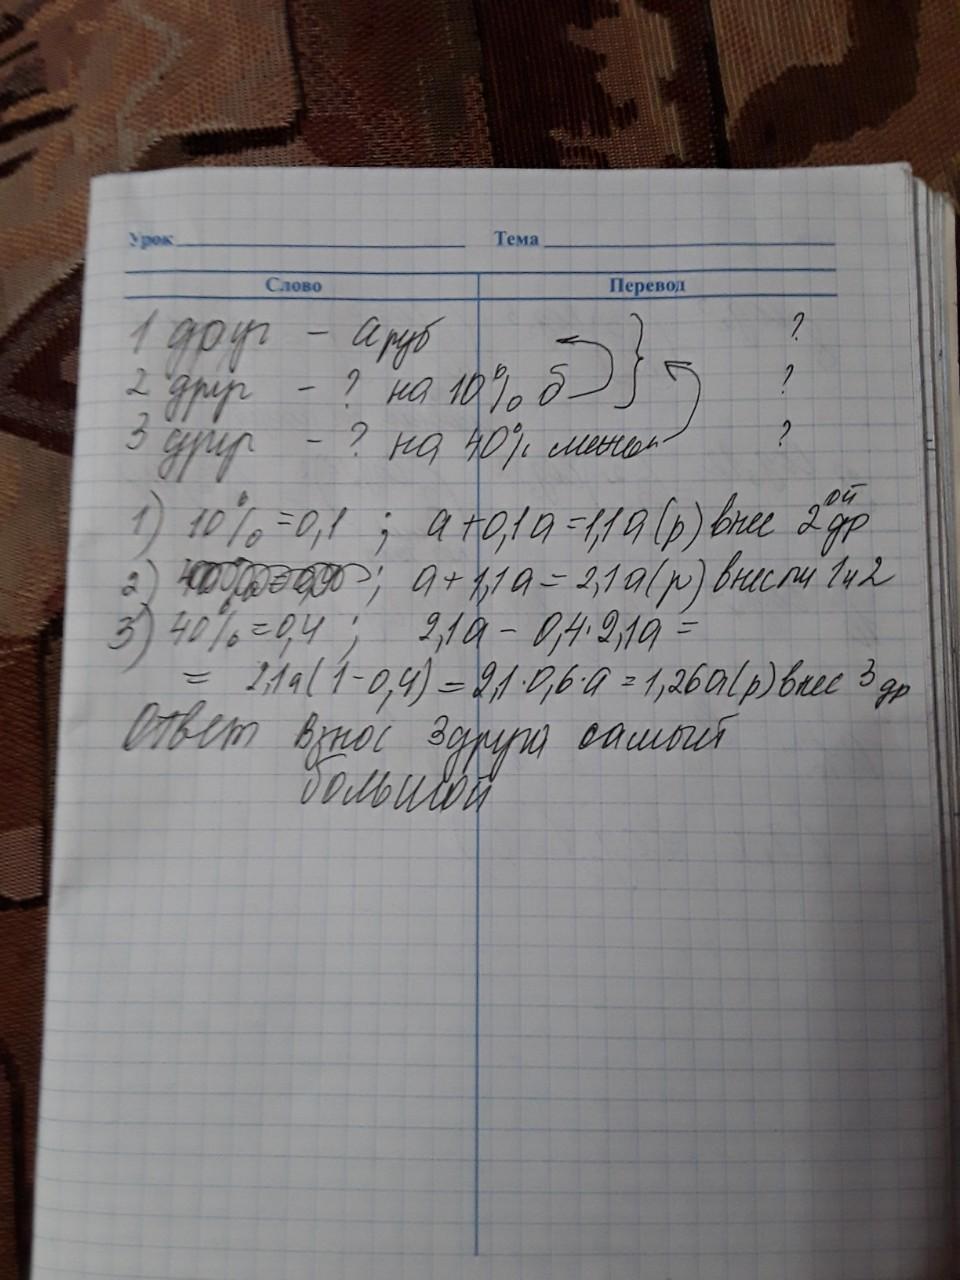 Урок Тема
Слово Перевод
1 друг – а руб ?
2 друг – ? на 10% б ?
3 друг – ? на 40% меньш ?
1) 10% = 0,1 ; а + 0,1а = 1,1а (р) внес 2ой др
2) ; а + 1,1а = 2,1а (р) внесли 1 и 2
3) 40% = 0,4 ; 2,1а – 0,4·2,1а =
= 2,1а (1 – 0,4) = 2,1·0,6·а = 1,26а (р) внес 3 др
Ответ взнос 3 друга самый
большой